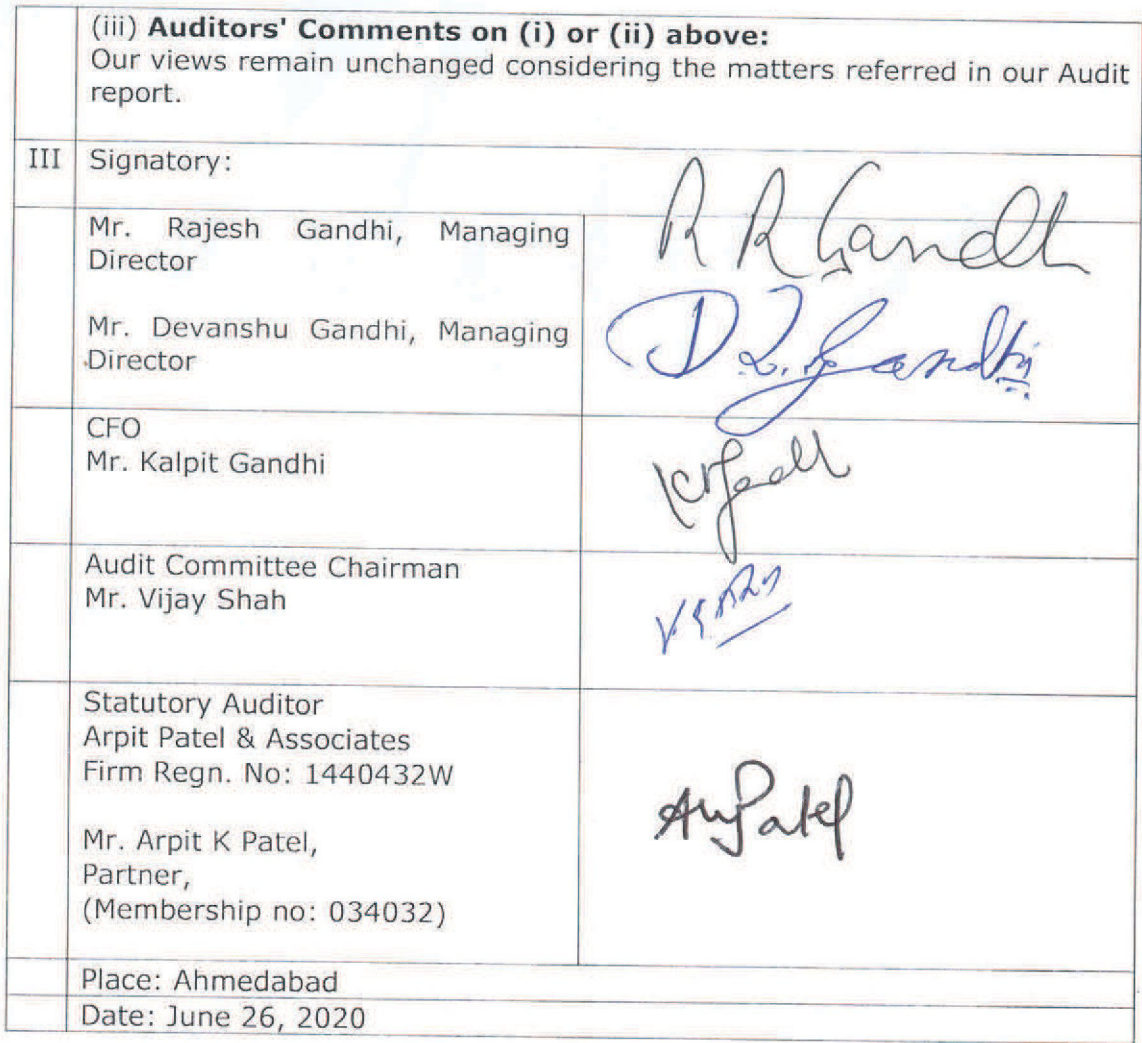 (iii) Auditors' Comments on (i) or (ii) above:
Our views remain unchanged considering the matters referred in our Audit
report.
III Signatory:
Mr. Rajesh Gandhi, Managing
Director
R R Gandhi
Mr. Devanshu Gandhi, Managing
Director
D. Gandhi
CFO
Mr. Kalpit Gandhi
Audit Committee Chairman
Mr. Vijay Shah
Statutory Auditor
Arpit Patel & Associates
Firm Regn. No: 1440432W
Patel
Mr. Arpit K Patel,
Partner,
(Membership no: 034032)
Place: Ahmedabad
Date: June 26, 2020